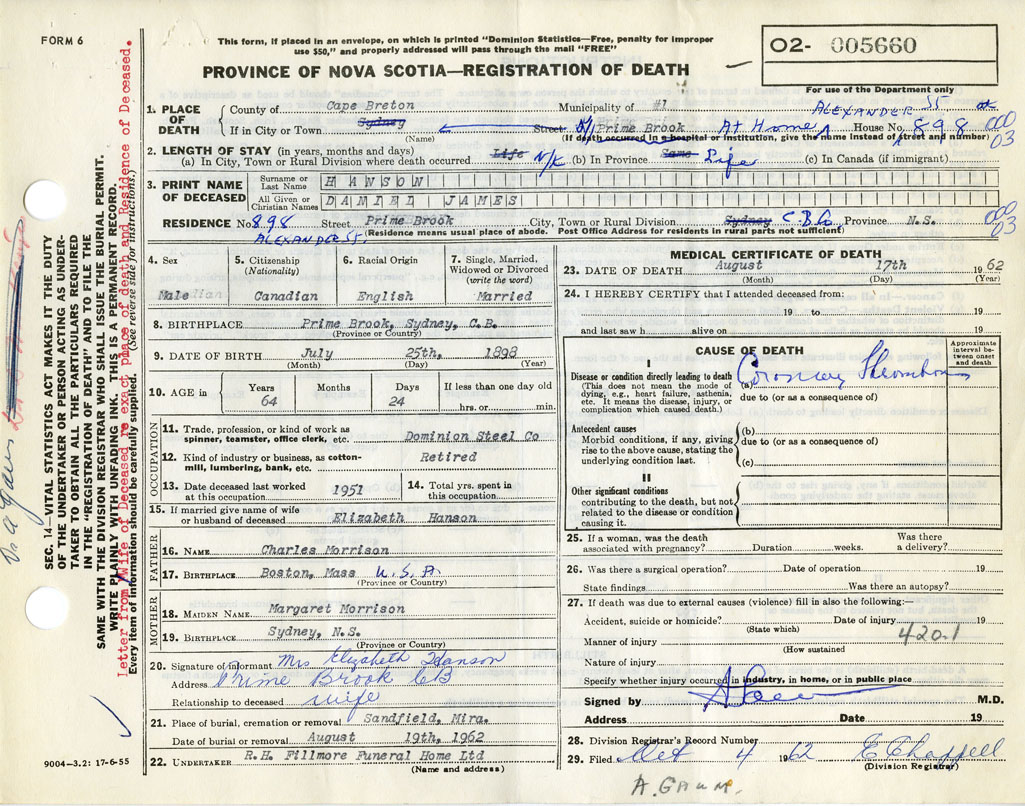 FORM 6
This form, if placed in an envelope, on which is printed "Dominion Statistics—Free, penalty for improper
use $50," and properly addressed will pass through the mail "FREE"
PROVINCE OF NOVA SCOTIA—REGISTRATION OF DEATH
O2- 005660
For use of the Department only
1. PLACE OF DEATH
County of Cape Breton Municipality of #1 ALEXANDER ST
If in City or Town Sydney Street Prime Brook At Home House No. 898
(Name) (If death occurred in a hospital or institution, give the name instead of street and number)
000
03
2. LENGTH OF STAY (in years, months and days)
(a) In City, Town or Rural Division where death occurred Life N/K (b) In Province Same Life (c) In Canada (if immigrant)
3. PRINT NAME OF DECEASED
Surname or Last Name HANSON
All Given or Christian Names DANIEL JAMES
RESIDENCE No 898 Street Prime Brook City, Town or Rural Division Sydney C.B. Co Province N.S.
ALEXANDER ST. (Residence means usual place of abode. Post Office Address for residents in rural parts not sufficient)
000
03
4. Sex Male
5. Citizenship (Nationality) Canadian
6. Racial Origin English
7. Single, Married, Widowed or Divorced (write the word) Married
8. BIRTHPLACE Prime Brook, Sydney, C.B.
(Province or Country)
9. DATE OF BIRTH July 25th, 1898
(Month) (Day) (Year)
10. AGE in Years 64 Months Days 24 If less than one day old
hrs. or min.
OCCUPATION
11. Trade, profession, or kind of work as
spinner, teamster, office clerk, etc. Dominion Steel Co
12. Kind of industry or business, as cotton-
mill, lumbering, bank, etc. Retired
13. Date deceased last worked
at this occupation 1951
14. Total yrs. spent in
this occupation
15. If married give name of wife
or husband of deceased Elizabeth Hanson
FATHER
16. NAME Charles Morrison
17. BIRTHPLACE Boston, Mass U.S.A
(Province or Country)
MOTHER
18. MAIDEN NAME Margaret Morrison
19. BIRTHPLACE Sydney, N.S.
(Province or Country)
20. Signature of informant Mrs Elizabeth Hanson
Address Prime Brook CB
Relationship to deceased wife
21. Place of burial, cremation or removal Sandfield, Mira.
Date of burial or removal August 19th, 1962
22. UNDERTAKER R.H. Fillmore Funeral Home Ltd
(Name and address)
MEDICAL CERTIFICATE OF DEATH
23. DATE OF DEATH August 17th 1962
(Month) (Day) (Year)
24. I HEREBY CERTIFY that I attended deceased from:
19 to 19
and last saw h alive on 19
CAUSE OF DEATH
Approximate interval between onset and death
I
Disease or condition directly leading to death (a) Coronary Thrombosis
(This does not mean the mode of
dying, e.g., heart failure, asthenia,
etc. It means the disease, injury, or
complication which caused death.)
due to (or as a consequence of)
Antecedent causes
Morbid conditions, if any, giving
rise to the above cause, stating the
underlying condition last.
(b)
due to (or as a consequence of)
(c)
II
Other significant conditions
contributing to the death, but not
related to the disease or condition
causing it.
25. If a woman, was the death
associated with pregnancy? Duration weeks. Was there
a delivery?
26. Was there a surgical operation? Date of operation 19
State findings Was there an autopsy?
27. If death was due to external causes (violence) fill in also the following:—
Accident, suicide or homicide? Date of injury 19
(State which)
420.1
Manner of injury
(How sustained
Nature of injury
Specify whether injury occurred in industry, in home, or in public place
Signed by M.D.
Address Date 19
28. Division Registrar's Record Number
29. Filed Oct 4 1962 E Chappell
(Division Registrar)
A. GAUM.
9004—3.2: 17-6-55
SEC. 14—VITAL STATISTICS ACT MAKES IT THE DUTY
OF THE UNDERTAKER OR PERSON ACTING AS UNDER-
TAKER TO OBTAIN ALL THE PARTICULARS REQUIRED
IN THE "REGISTRATION OF DEATH" AND TO FILE THE
SAME WITH THE DIVISION REGISTRAR WHO SHALL ISSUE THE BURIAL PERMIT.
WRITE PLAINLY WITH UNFADING INK. THIS IS A PERMANENT RECORD.
Every item of information should be carefully supplied. (See reverse side for instructions.)
Letter from Wife of Deceased re exact place of death and Residence of Deceased.
Dr. A Gaum